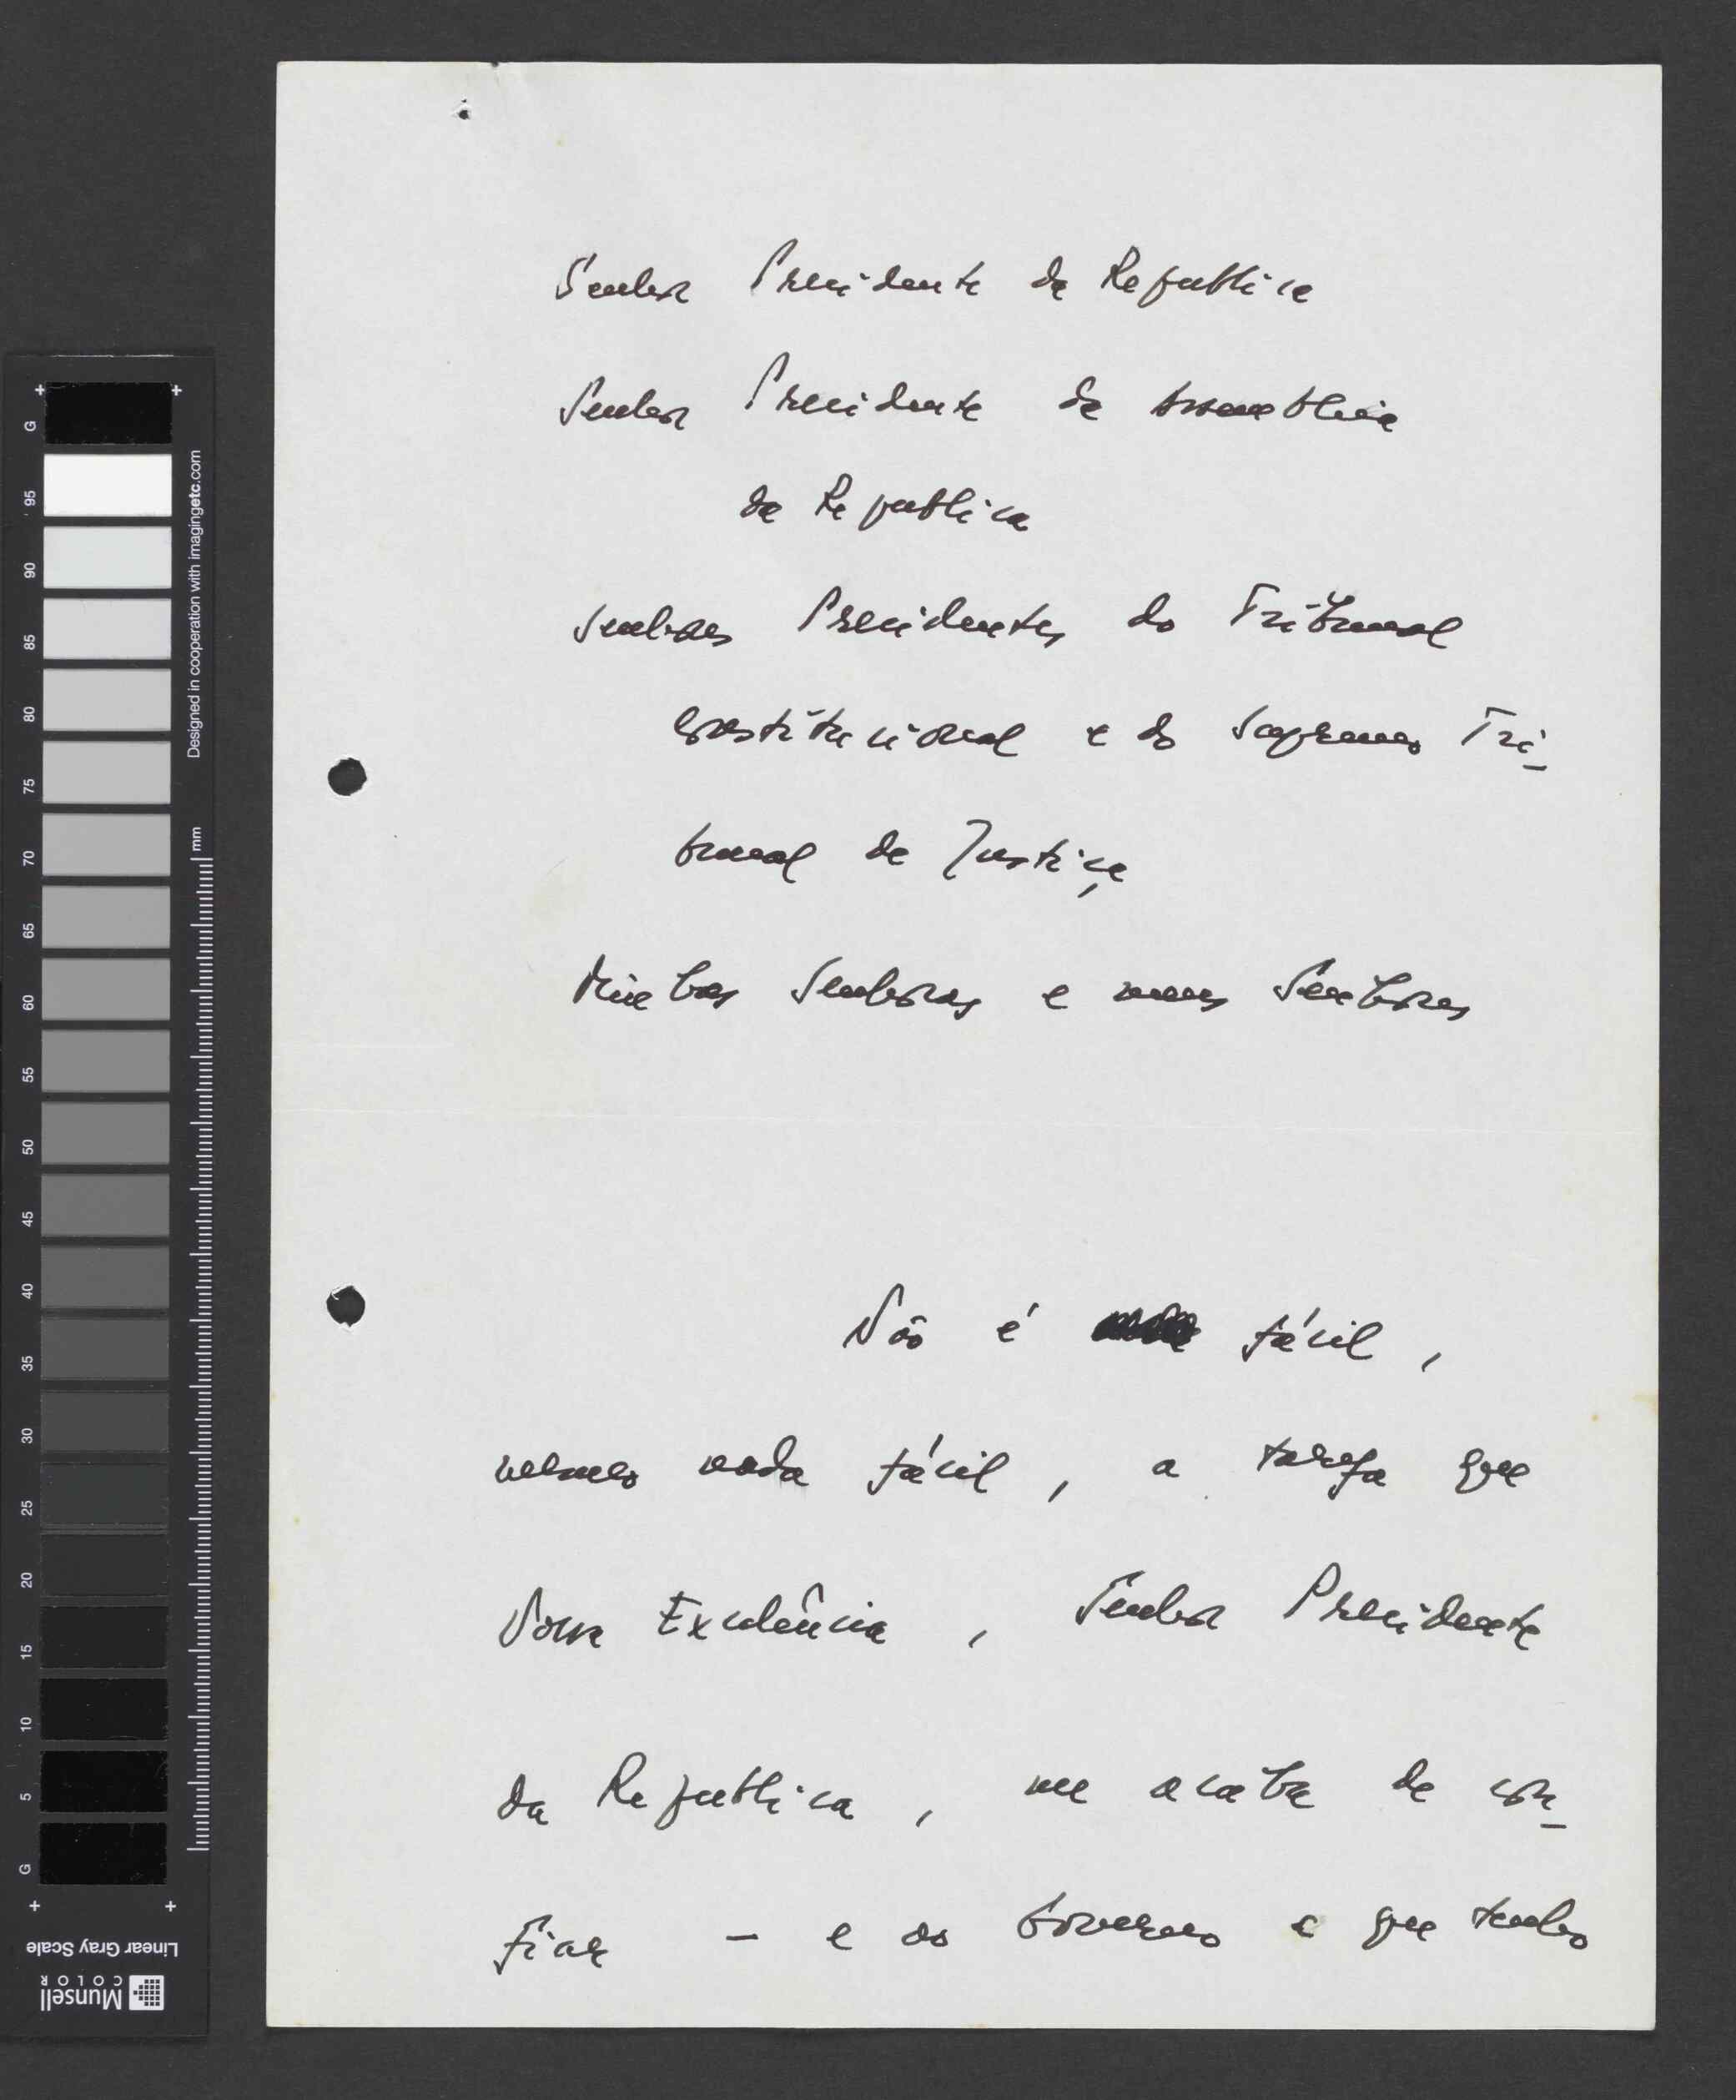 Senhor Presidente da Republica
Senhor Presidente da Assembleia
da Republica
Senhores Presidentes do Tribunal
Constitucional e do Supremo Tri-
bunal de Justiça
Minhas Senhoras e meus Senhores
Não é fácil,
mesmo nada fácil, a tarefa que
Vossa Excelência, Senhor Presidente
da Republica, me acaba de con-
fiar - e ao Governo a que tenho
G 95 90 85 80 75 70 65 60 55 50 45 40 35 30 25 20 15 10 5 G
Designed in cooperation with imagingetc.com
mm
Linear Gray Scale
Munsell
COLOR